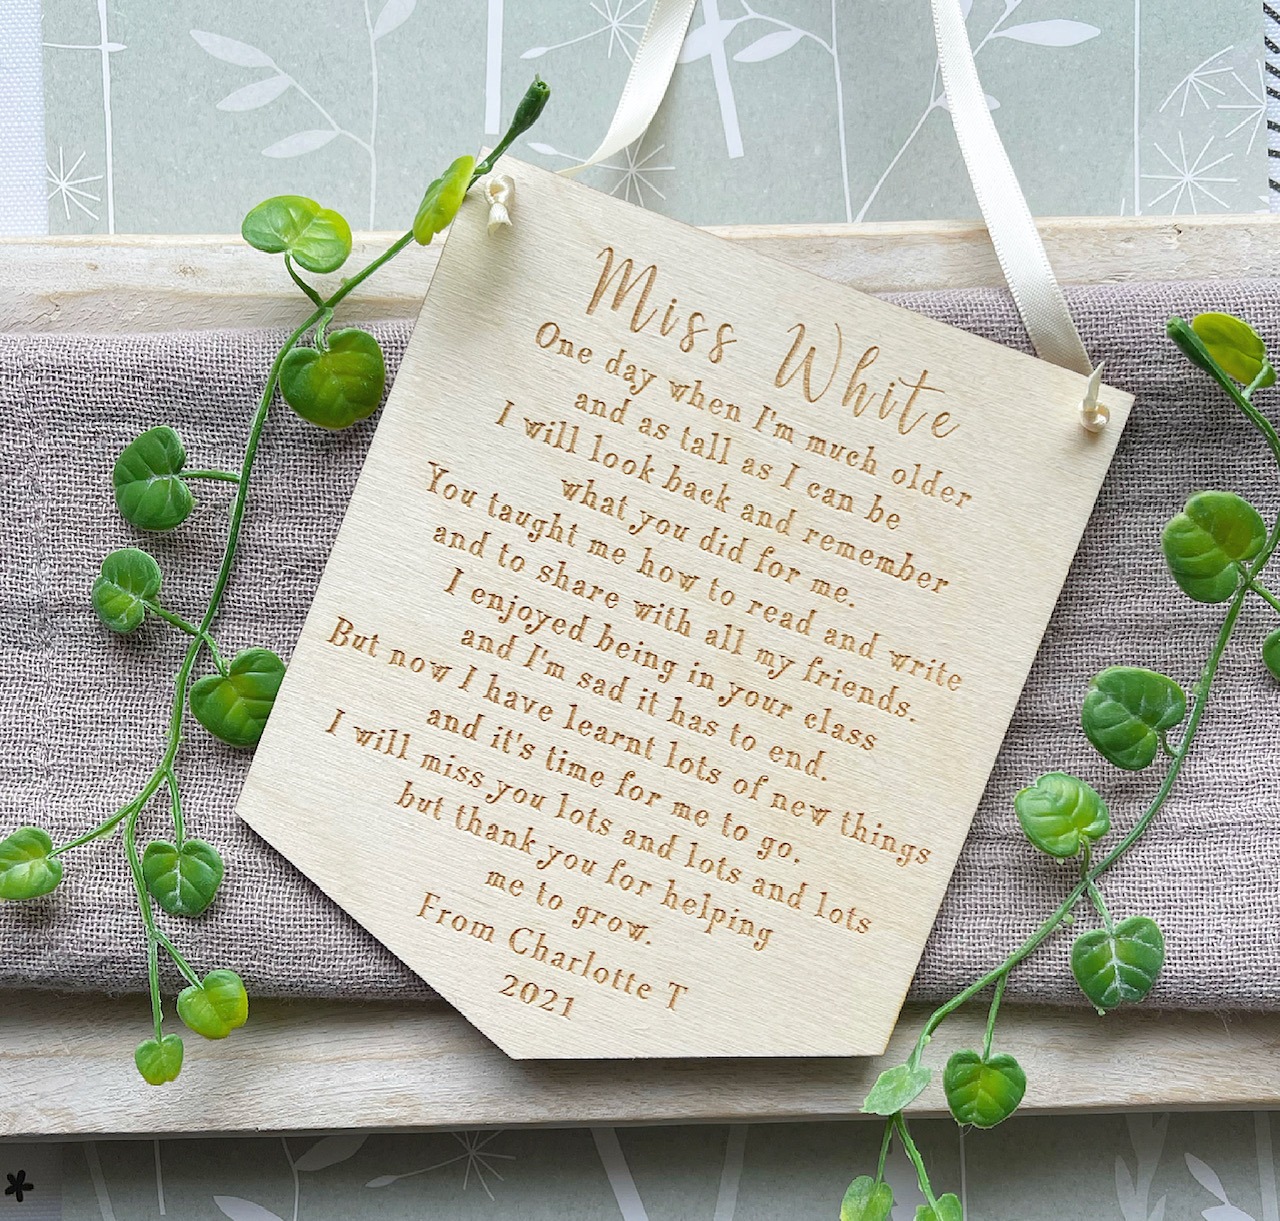 Miss White
One day when I'm much older
and as tall as I can be
I will look back and remember
what you did for me.
You taught me how to read and write
and to share with all my friends.
I enjoyed being in your class
and I'm sad it has to end.
But now I have learnt lots of new things
and it's time for me to go.
I will miss you lots and lots and lots
but thank you for helping
me to grow.
From Charlotte T
2021